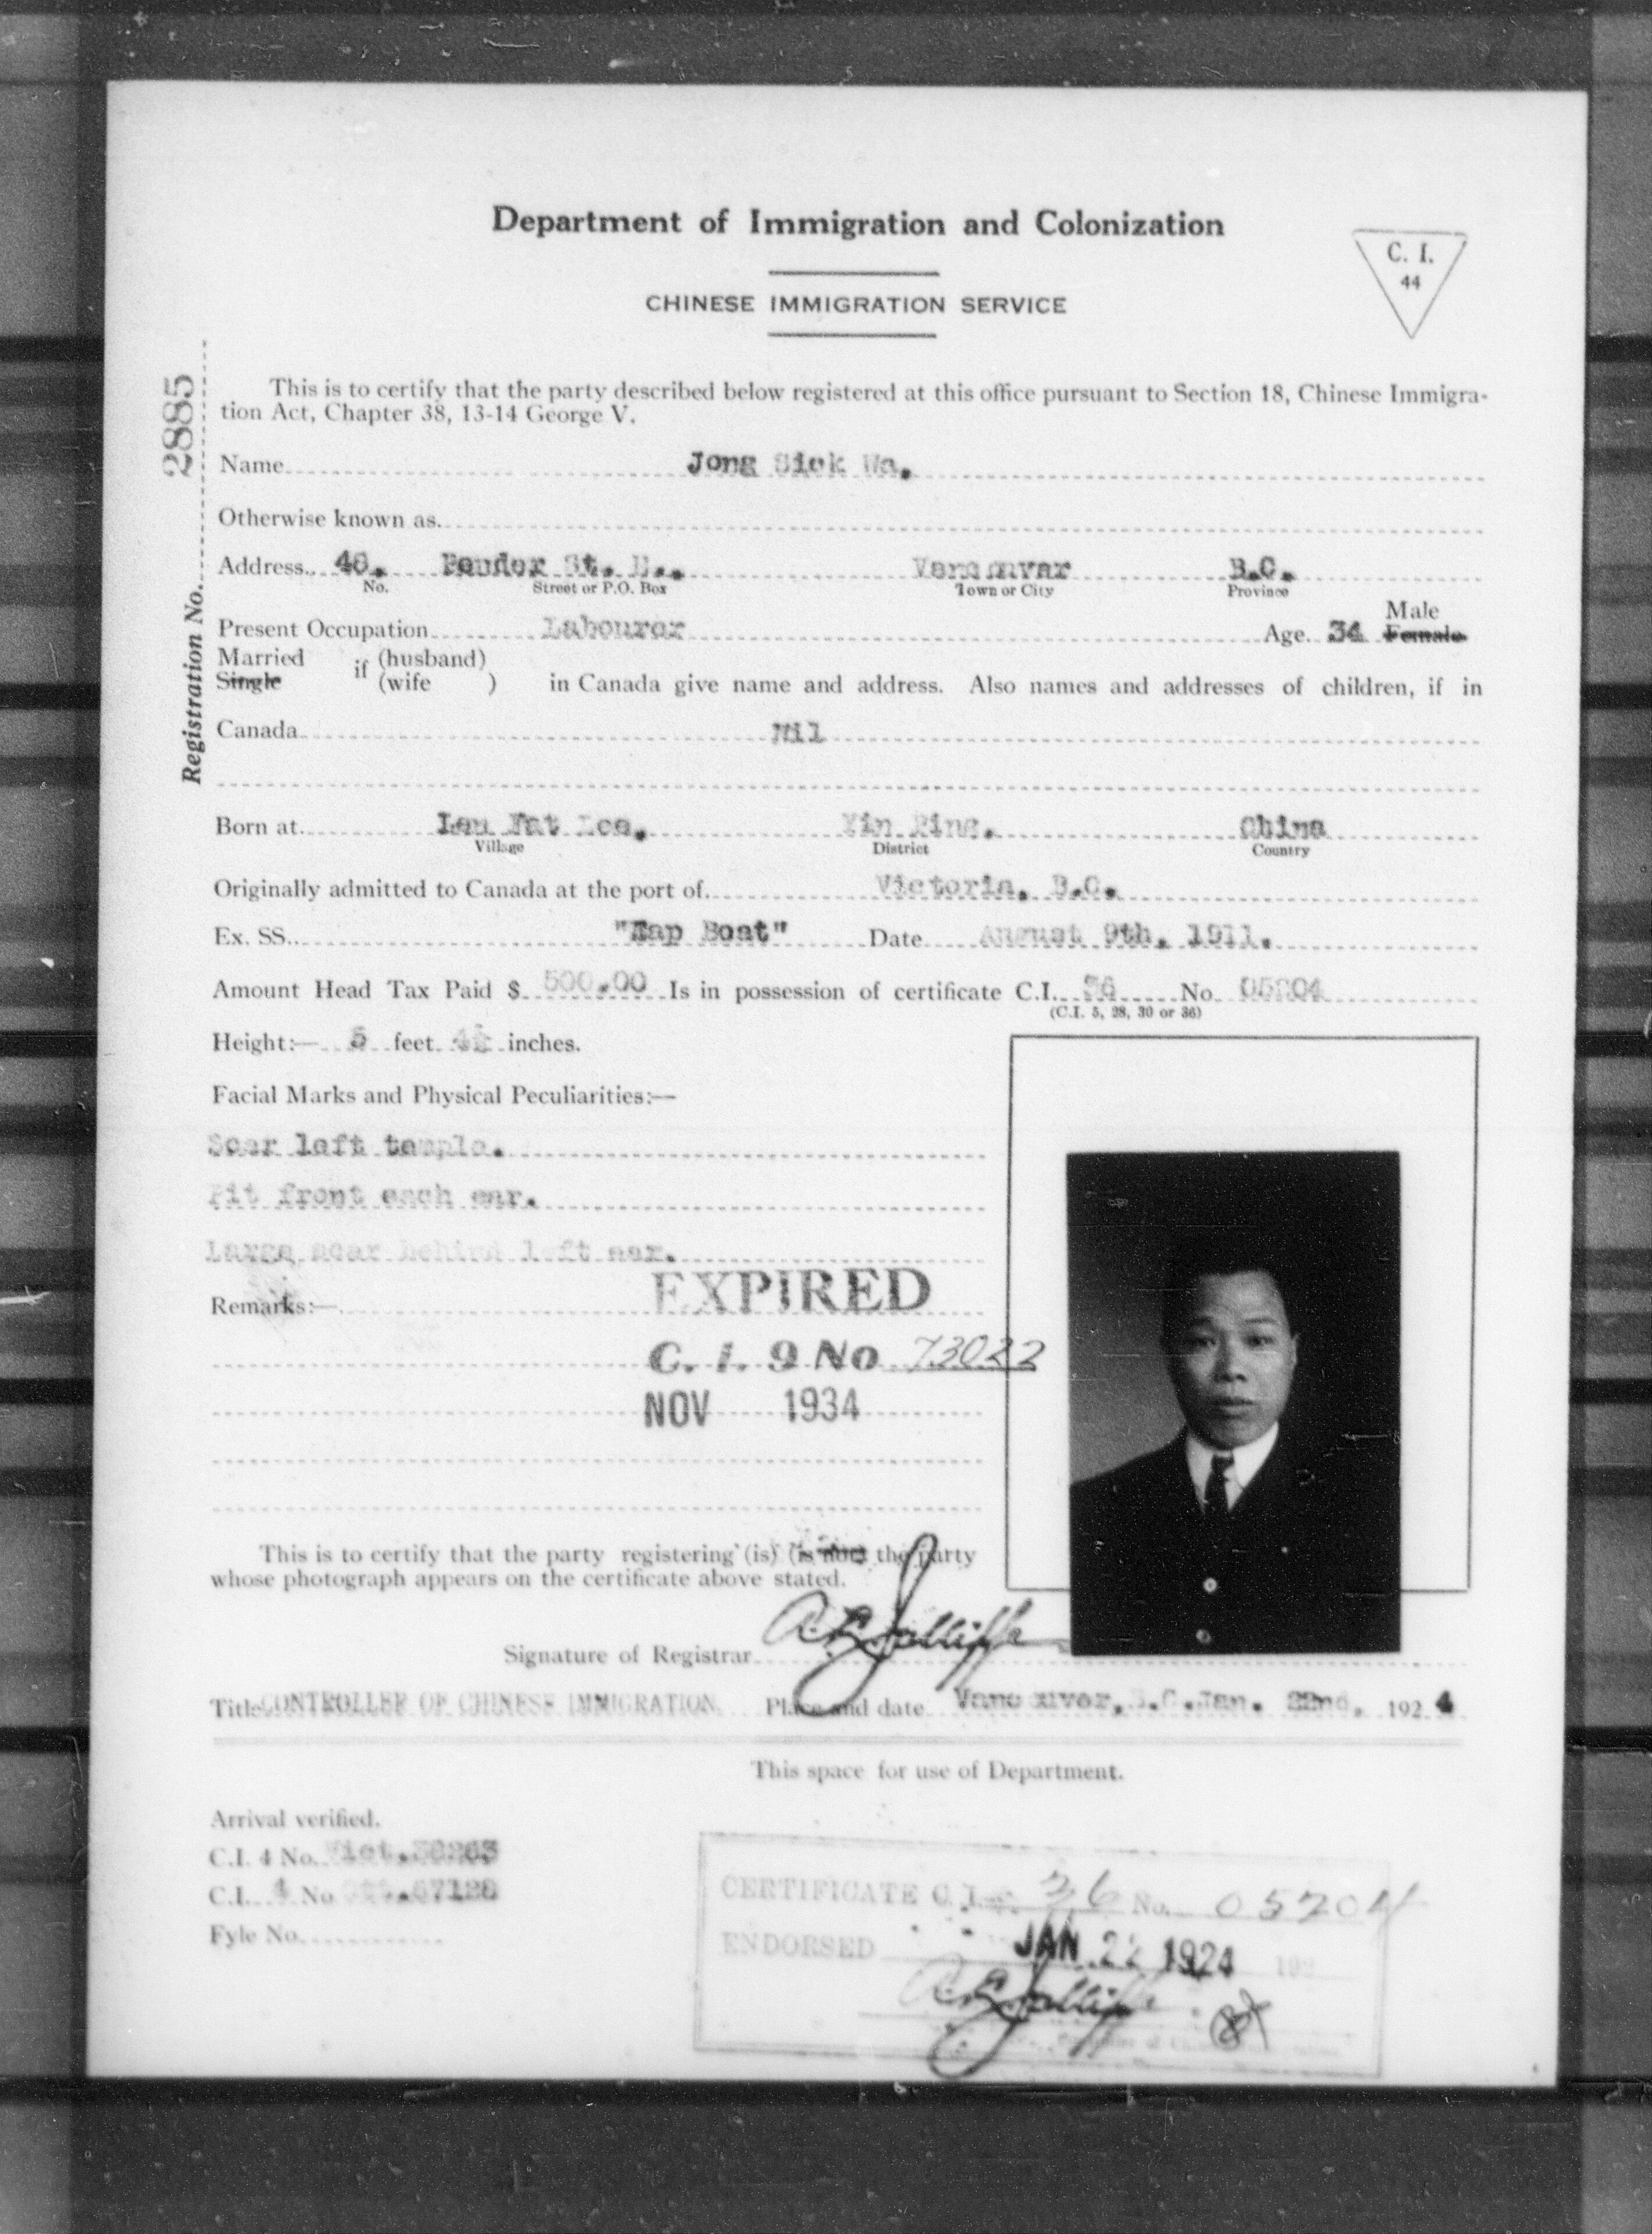 Department of Immigration and Colonization
CHINESE IMMIGRATION SERVICE
C. I.
44
Registration No. 2885
This is to certify that the party described below registered at this office pursuant to Section 18, Chinese Immigra-
tion Act, Chapter 38, 13-14 George V.
Name Jong Sick Wa.
Otherwise known as
Address 48. Pender St. E. Vancouver B.C.
No. Street or P.O. Box Town or City Province
Male
Present Occupation Labourer Age 34 Female
Married if (husband)
Single (wife ) in Canada give name and address. Also names and addresses of children, if in
Canada Nil
Born at Lau Fat Lee. Yin Ping. China
Village District Country
Originally admitted to Canada at the port of Victoria, B.C.
Ex. SS. "Jap Boat" Date August 9th, 1911.
Amount Head Tax Paid $ 500.00 Is in possession of certificate C.I. 36 No 05204
(C.I. 5, 28, 30 or 36)
Height:— 5 feet inches.
Facial Marks and Physical Peculiarities:—
Scar left temple.
Pit front each ear.
Large scar behind left ear.
Remarks:—
EXPIRED
C. I. 9 No 73022
NOV 1934
This is to certify that the party registering (is) (is not) the party
whose photograph appears on the certificate above stated.
Signature of Registrar
Title CONTROLLER OF CHINESE IMMIGRATION. Place and date Vancouver, B.C. Jan. 22nd, 1924
This space for use of Department.
Arrival verified.
C.I. 4 No. Vict.
C.I. 4 No
Fyle No.
CERTIFICATE C.I. 36 No. 05204
ENDORSED JAN 22 1924 192